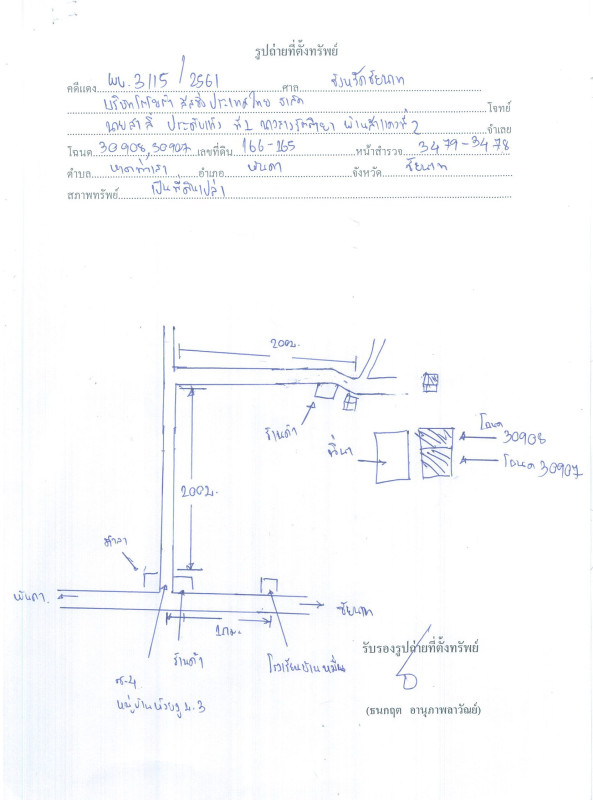 รูปถ่ายที่ตั้งทรัพย์
คดีแดง ผบ. 3115/2561 ศาล จังหวัดชัยนาท
บริษัทโตโยต้า ลีสซิ่ง ประเทศไทย จำกัด โจทย์
ที่ 1 ที่ 2 จำเลย
โฉนด 30908, 30907 เลขที่ดิน 166-165 หน้าสำรวจ 3479-3478
ตำบล อำเภอ จังหวัด ชัยนาท
สภาพทรัพย์ เป็นที่ดินเปล่า
200ม.
ร้านค้า
ที่นา
โฉนด 30908
โฉนด 30907
200ม.
ศาลา
ชัยนาท
1กม.
ร้านค้า
โรงเรียนบ้านหมื่น
หมู่บ้าน ม.3
รับรองรูปถ่ายที่ตั้งทรัพย์
(ธนกฤต อานุภาพลาวัณย์)